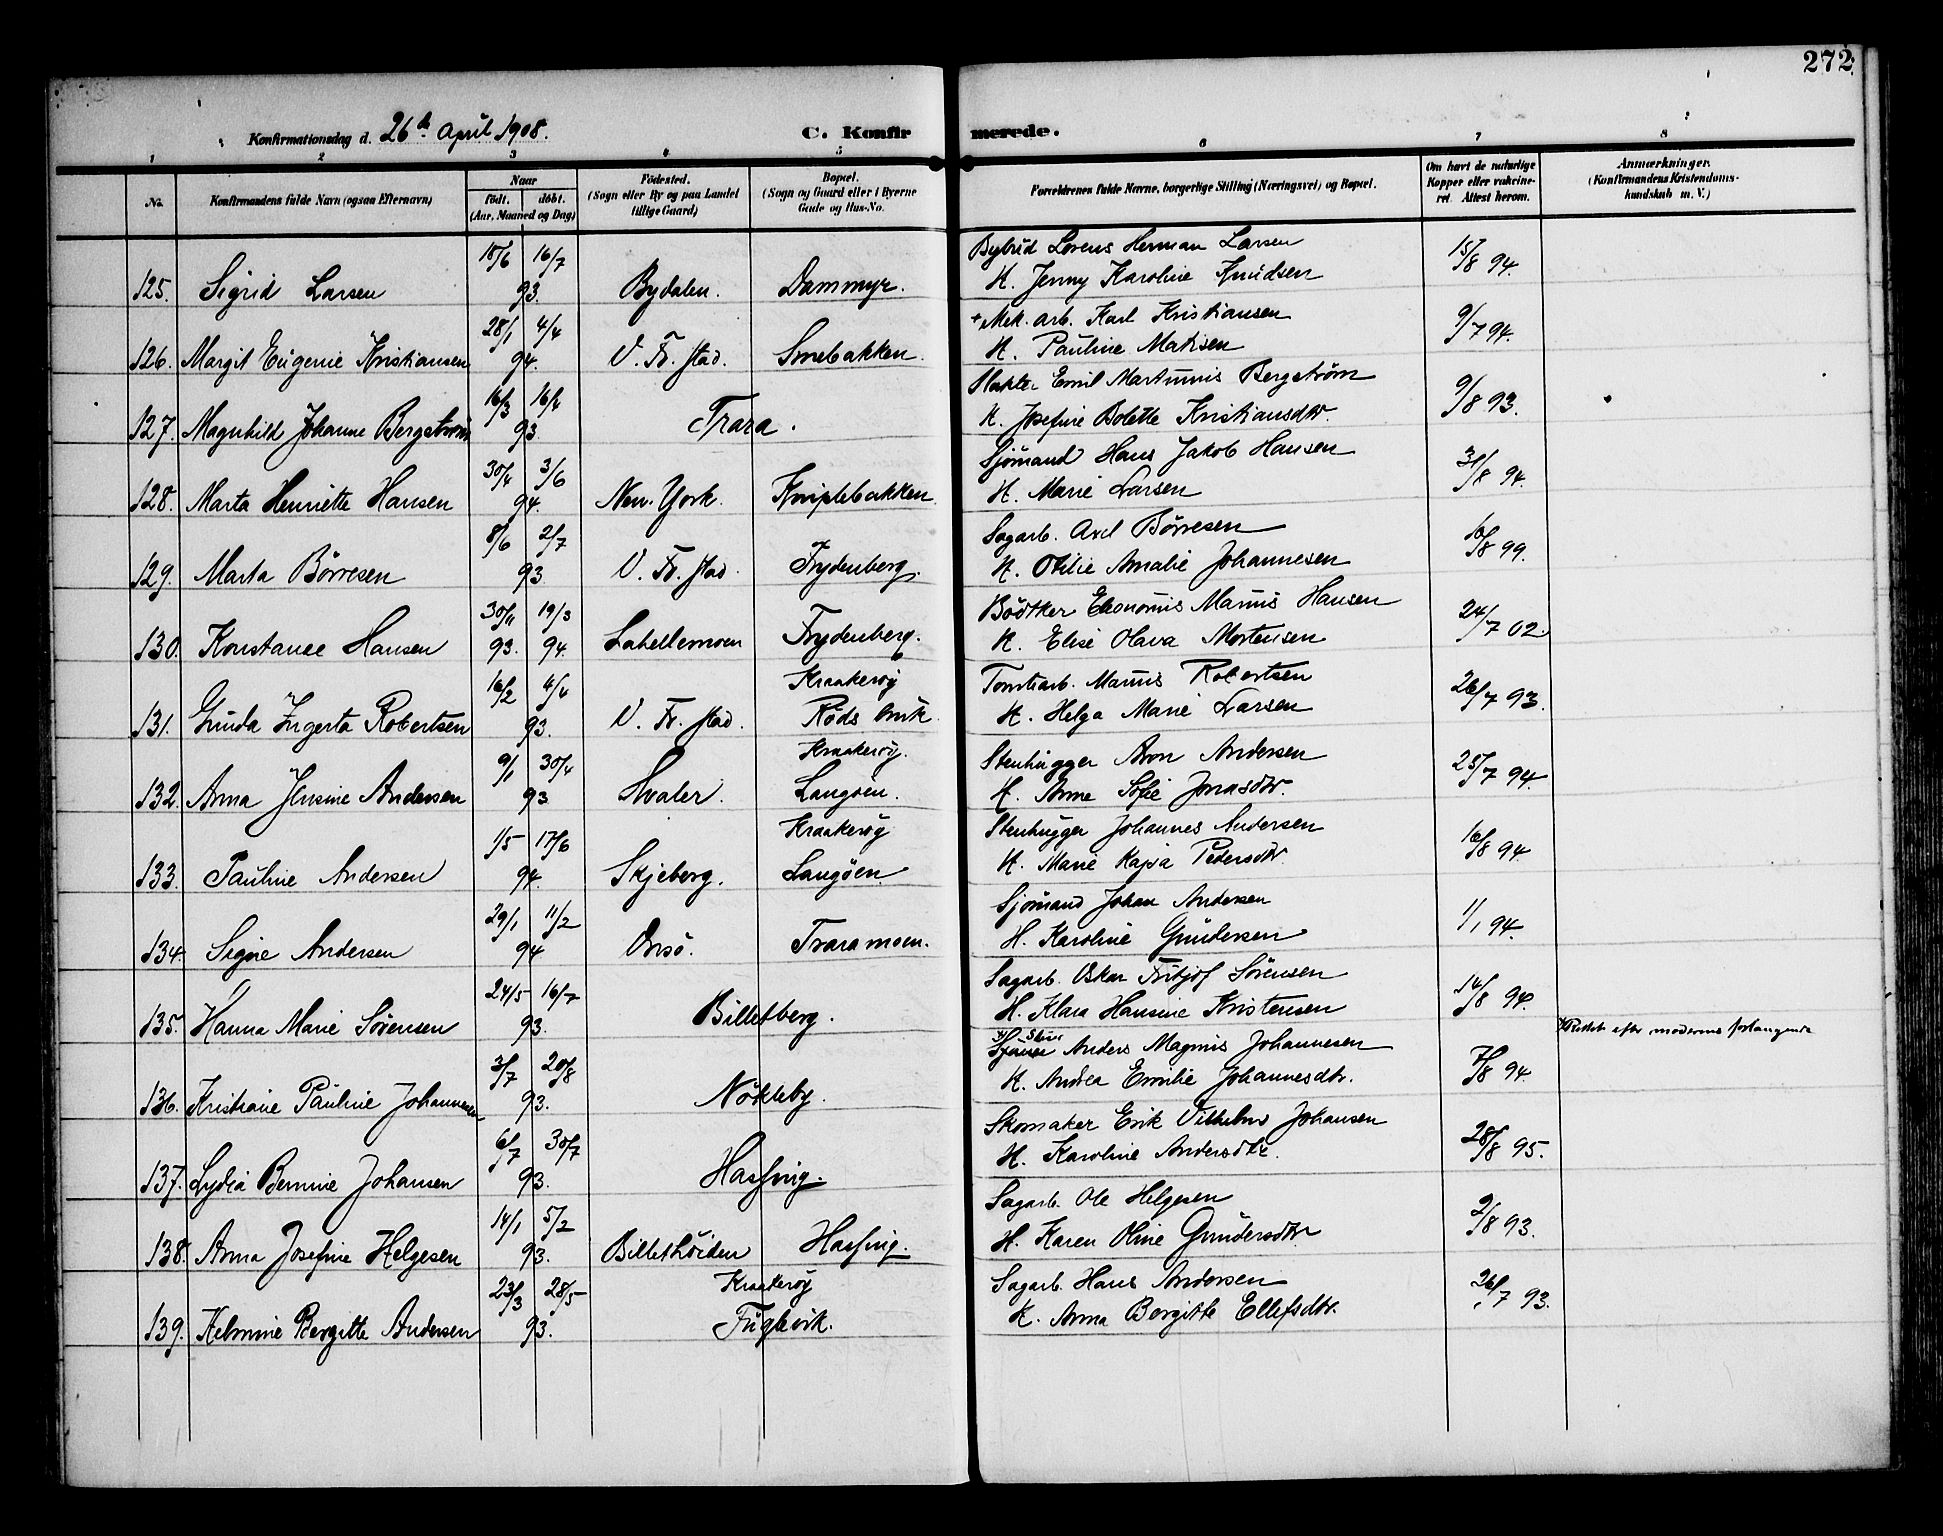 272
Konfirmationsdag d. 26de April 1908. C. Konfir merede.
1 2 3 4 5 6 7 8
No. Konfirmandens fulde Navn (ogsaa Efternavn) Naar født. døbt. (Aar, Maaned og Dag) Fødested. (Sogn eller By og paa Landet tillige Gaard) Bopæl. (Sogn og Gaard eller i Byerne Gade og Hus-No. Forældrenes fulde Navne, borgerlige Stilling (Næringsvei) og Bopæl. Om havt de naturlige Kopper eller vakcineret. Attest herom. Anmærkninger. (Konfirmandens Kristendomskundskab m. V.)
18/6 16/7 Lorens Herman Larsen 15/8 94.
125. Sigrid Larsen 93. Bydalen. Dammyr. H. Jenny Karoline Knudsen
28/1 4/4 + Mek. arb. Karl Kristiansen 9/7 94.
126. Margit Eugenie Kristiansen 94. V. Fr.stad. Smebakken. H. Pauline Matisen
16/3 16/4 Emil Martinius Bergström 9/8 93.
127. Magnhild Johanne Bergström 93. Trara. H. Josefine Bolette Kristiansdtr.
30/4 3/6 Sjömand Hans Jakob Hansen 31/8 94.
128. Marta Henriette Hansen 94. New. York. Kniplebakken. H. Marie Larsen
8/6 2/7 Sagarb. Axel Börresen 16/8 99.
129. Marta Börresen 93 V. Fr.stad. Frydenberg. H. Otilie Amalie Johannesen
30/11 19/3 Bödtker Ekonomus Marius Hansen 24/7 02.
130. Konstance Hansen 93. 94. Lahellemoen Frydenberg. H. Elise Olava Mortensen
16/2 4/4 Kraakeröy Tomtearb. Marius Robertsen 26/7 93.
131. Gunda Ingerta Robertsen 93. V. Fr.stad. Röds bruk. H. Helga Marie Larsen
9/1 30/4 Kraakeröy. Stenhugger Aron Andersen 25/7 94.
132. Anna Jensine Andersen 93 Hvaler. Langöen. H. Anne Sofie Jonasdtr.
1/5 17/6 Kraakeröy Stenhugger Johannes Andersen 16/8 94
133. Pauline Andersen 94. Skjeberg. Langöen. H. Marie Kajsa Pedersdtr.
29/1 11/2 Sjömand Johan Andersen 1/1 94.
134. Signe Andersen 94 Onsö. Traramoen. H. Karoline Gundersen
24/5 16/7 Sagarb. Oskar Fritjof Sörensen 14/8 94.
135. Hanna Marie Sörensen 93. Billetberg. H. Klara Hansine Kristensen
3/7 20/8 Anders Magnus Johannesen 7/8 94. Rettet efter moderens forlangende
136. Kristiane Pauline Johannesen 93. Nökleby. H. Andrea Emilie Johannesdtr.
6/7 30/7 Skomaker Erik Vilhelm Johansen 28/8 95.
137. Lydia Bernine Johansen 93. Hassing. H. Karoline Andersdtr.
14/1 5/2 Sagarb. Ole Helgesen 2/8 93.
138. Anna Josefine Helgesen 93. Billethöiden Hassing. H. Karen Oline Gundersdtr
23/3 28/5 Kraakeröy Sagarb. Hans Andersen 26/7 93.
139. Helmine Bergitte Andersen 93. Fuglevik. H. Anna Bergitte Ellefsdtr.